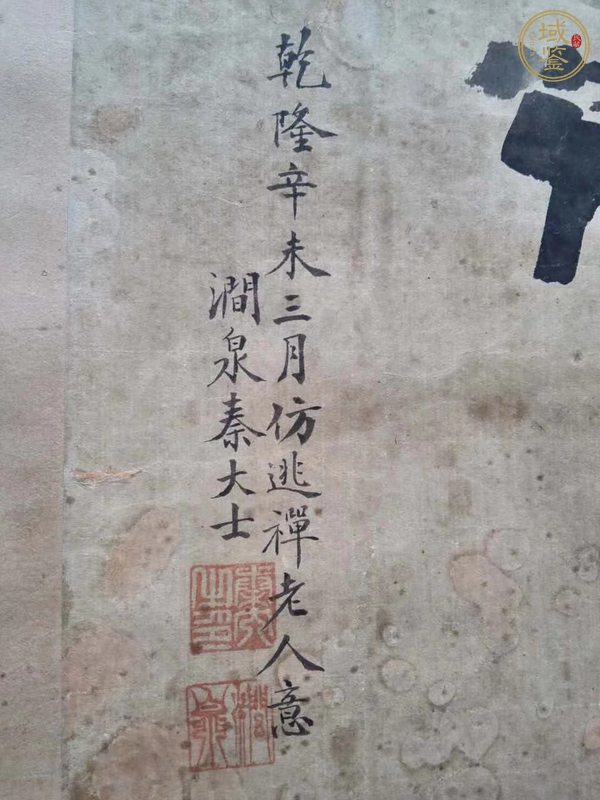 乾隆辛未三月仿逃禪老人意
澗泉秦大士
澗泉
域鉴